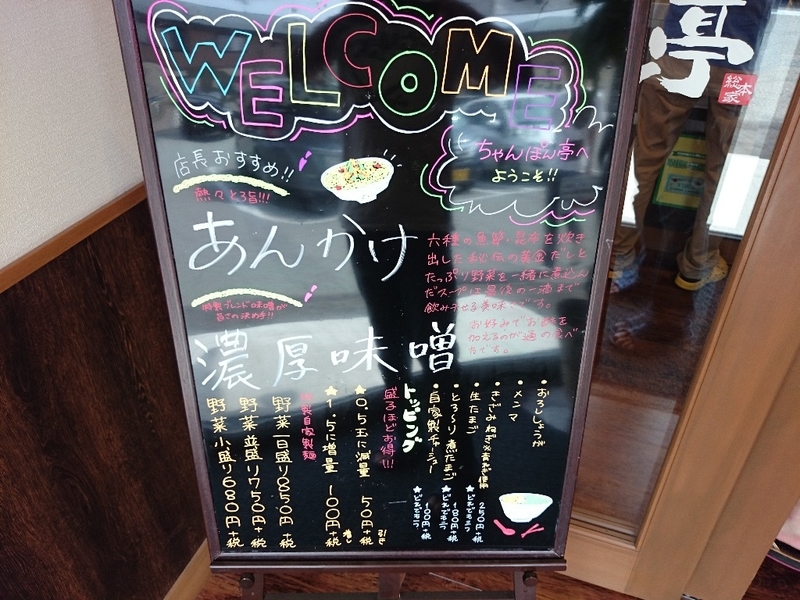 WELCOME
亭
総本家
ちゃんぽん亭へ
ようこそ!!
店長おすすめ!!
熱々とろ旨!!!
あんかけ
六種の魚節・昆布を炊き
出した秘伝の黄金だしと
たっぷり野菜を一緒に煮込ん
だスープは最後の一滴まで
飲みほせる美味しさです。
お好みでお酢を
加えるのが通の食べ
方です。
特製ブレンド味噌が
旨さの決め手!!
濃厚味噌
・おろししょうが
・メンマ
・きざみねぎ
・生たまご
・とろ〜り煮たまご
・自家製チャーシュー
トッピング
盛るほどお得!!!
★どれでも3コ 250円+税
★どれでも2コ 180円+税
★どれでも1コ 100円+税
★0.5玉に減量 50円引き+税
★1.5に増量 100円増し+税
自家製麺
野菜一日盛り850円+税
野菜並盛り750円+税
野菜小盛り680円+税